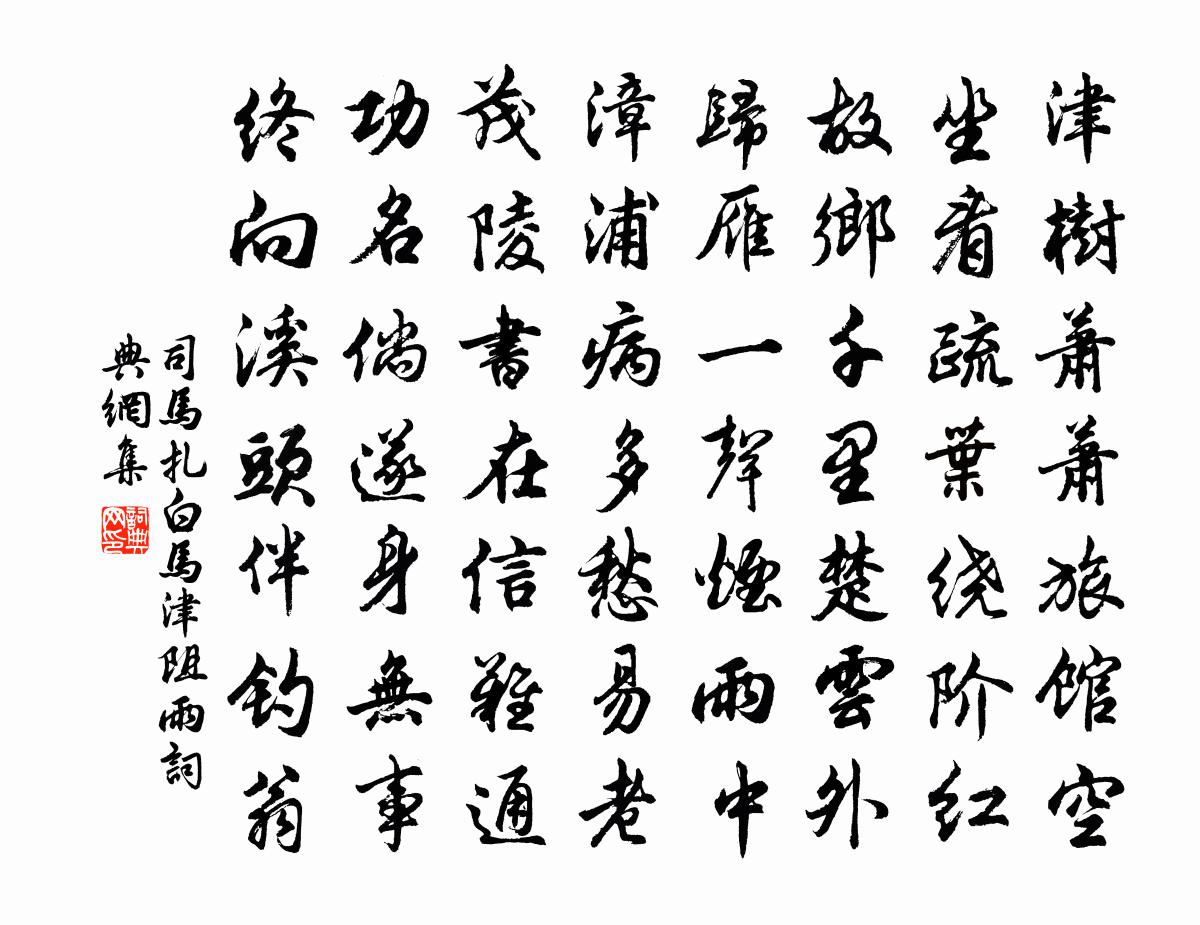 津樹蕭蕭旅馆空
坐看疏葉绕阶红
故鄉千里楚雲外
歸雁一聲煙雨中
漳浦病多愁易老
茂陵書在信難通
功名倘遂身無事
终向溪頭伴釣翁
司馬扎白馬津阻雨詞
典網集
詞典
网印